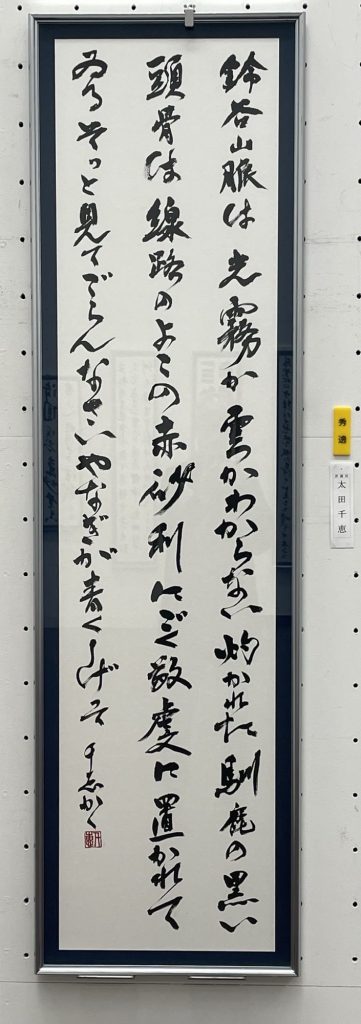 鈴谷山脈は光霧か雲かわからない灼かれた馴鹿の黒い
頭骨は線路のよこの赤砂利にごく敬虔に置かれて
ゐるそっと見てごらんなさいやなぎが青くしげって
千恵かく
秀逸
太田千恵